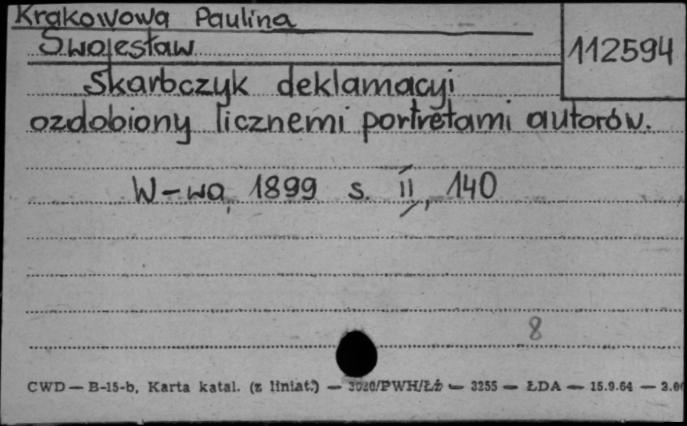 Krakowowa Paulina
Swojesław
112594
Skarbczyk deklamacyi
ozdobiony licznemi portretami autorów.
W-wa, 1899 s. II, 140
8
CWD — B-15-b, Karta katal. (z liniat.) — 3020/PWH/Łż — 3255 — ŁDA — 15.9.64 —